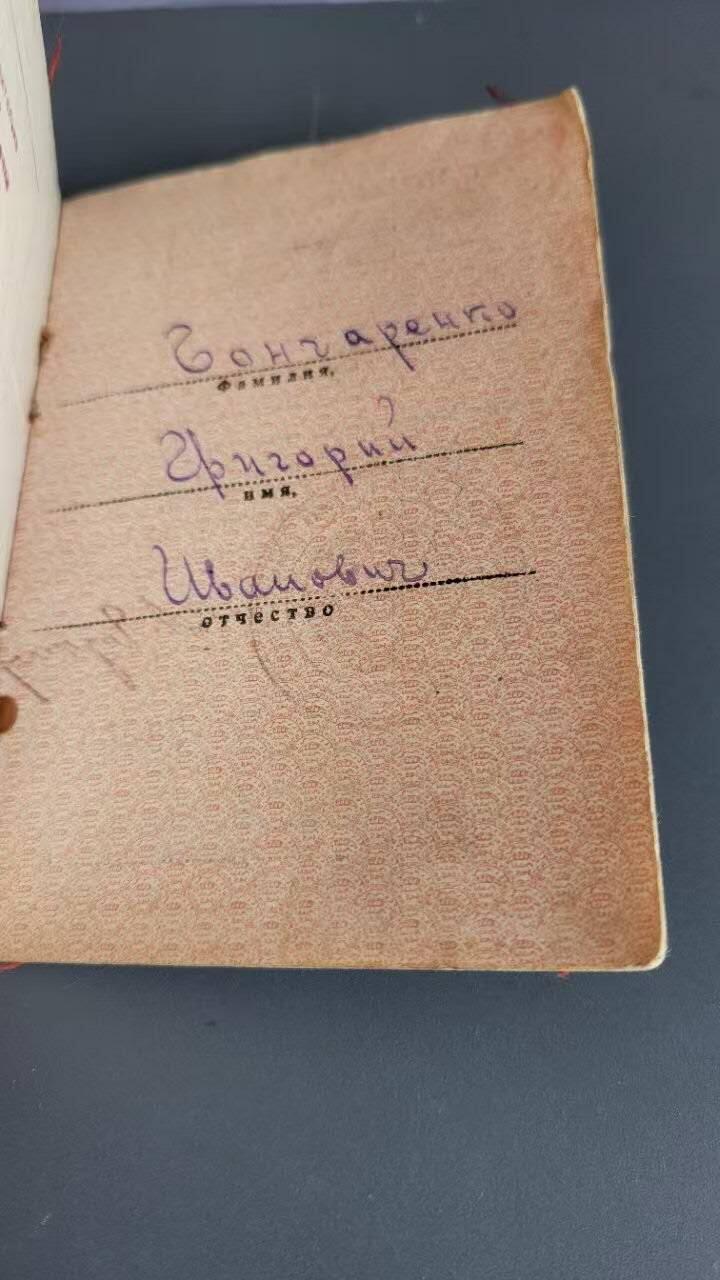 Гончаренко
Фамилия,
Григорий
имя,
Иванович
отчество